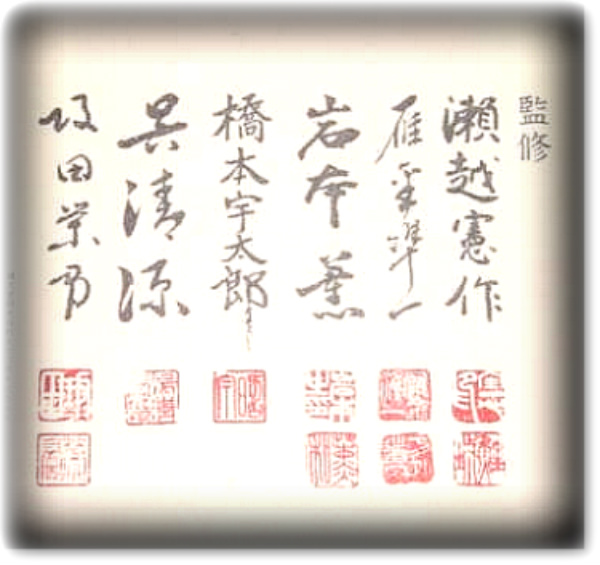 監修
瀬越憲作
雁金準一
岩本薫
橋本宇太郎
呉清源
坂田栄男